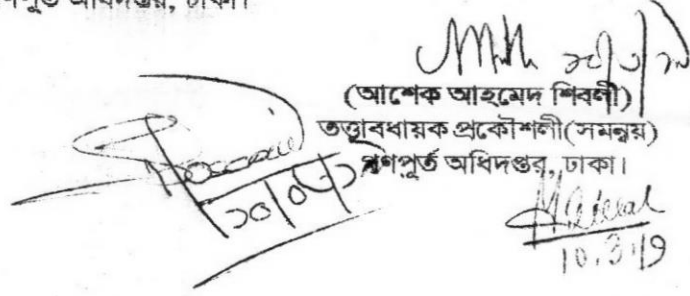 গণপূর্ত অধিদপ্তর, ঢাকা।
(আশেক আহমেদ শিবলী)
তত্ত্বাবধায়ক প্রকৌশলী(সমন্বয়)
গণপূর্ত অধিদপ্তর, ঢাকা।
10.3.19